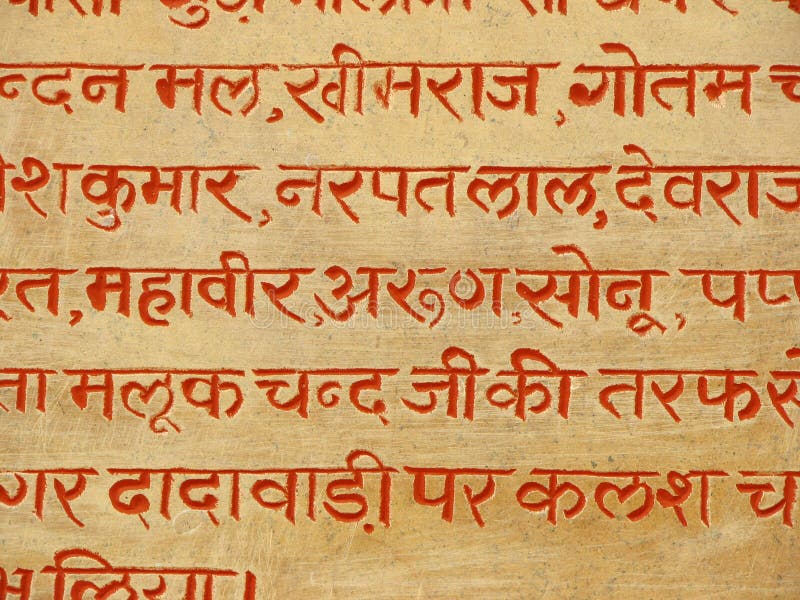 न्दन मल, खीमराज, गोतम च
ेश कुमार, नरपत लाल, देवराज
रत, महावीर, अरूण, सोनू, पप्प
ता मलूक चन्द जी की तरफ से
गर दादावाडी़ पर कलश च
लिया।